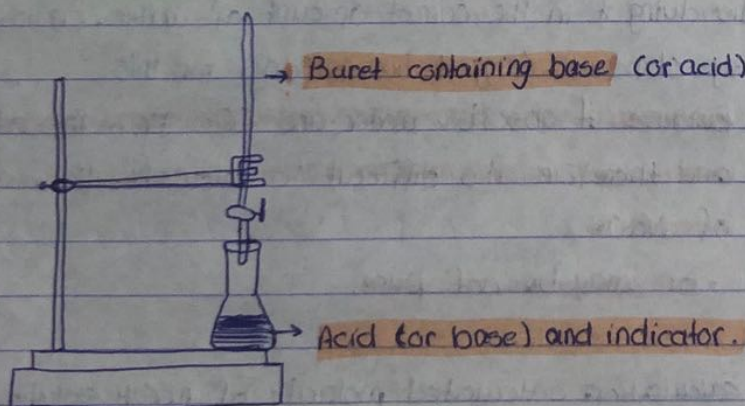 → Buret containing base (or acid)
→ Acid (or base) and indicator.